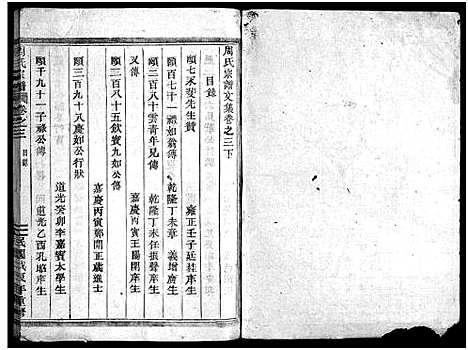 周氏宗譜文集卷之三下
目錄
頤七禾斐先生贊
雍正壬子廷桂庠生
頤百七十一禮如翁傳
乾隆丁未章 義增廣生
頤二百八十雲青年兄傳
乾隆丁未任振聲庠生
又傳
嘉慶丙寅王陽開庠生
頤二百八十五欽賓九如公傳
嘉慶丙寅鄭開正歲進士
頤三百九十八慶如公行狀
道光癸卯李嘉賓太學生
頤千九十一子祿公傳
道光乙酉孔昭庠生
周氏宗譜
卷之三
目錄
民國
年重修